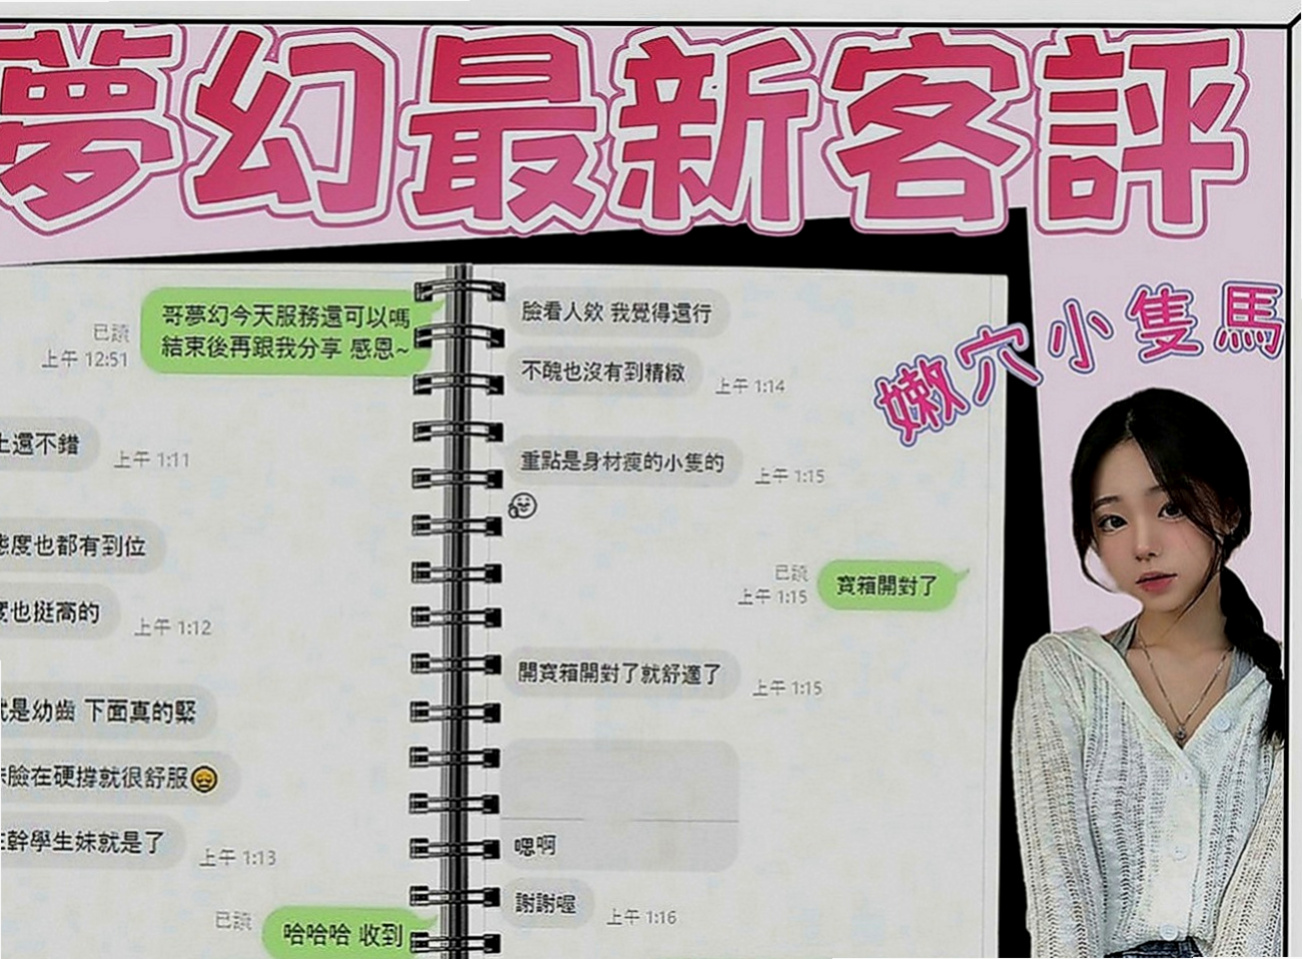 夢幻最新客評
嫩穴小隻馬
哥夢幻今天服務還可以嗎
結束後再跟我分享 感恩~
已讀
上午 12:51
還不錯
上午 1:11
度也都有到位
也挺高的
上午 1:12
是幼齒 下面真的緊
臉在硬撐就很舒服
幹學生妹就是了
上午 1:13
已讀
哈哈哈 收到
臉看人欸 我覺得還行
不醜也沒有到精緻
上午 1:14
重點是身材瘦的小隻的
上午 1:15
已讀
上午 1:15
寶箱開對了
開寶箱開對了就舒適了
上午 1:15
嗯啊
謝謝喔
上午 1:16